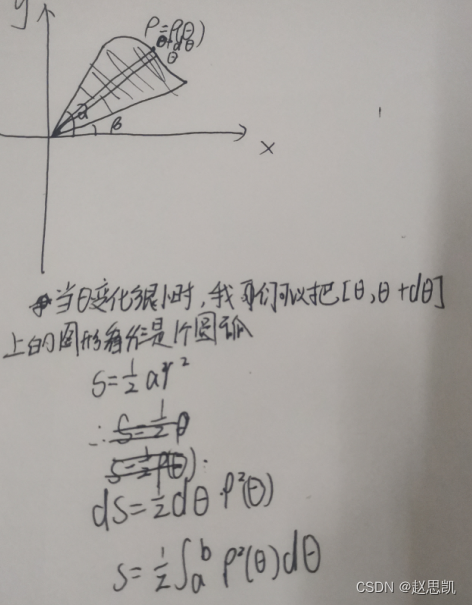 y
ρ=ρ(θ)
θ+dθ
θ
α
β
x
当θ变化很小时,我们可以把[θ,θ+dθ]
上的图形看作是个圆
S=½ar²
∴S=½ρ
S=½ρ(θ)
dS=½dθ·ρ²(θ)
S=½∫ₐᵇρ²(θ)dθ
CSDN @赵思凯